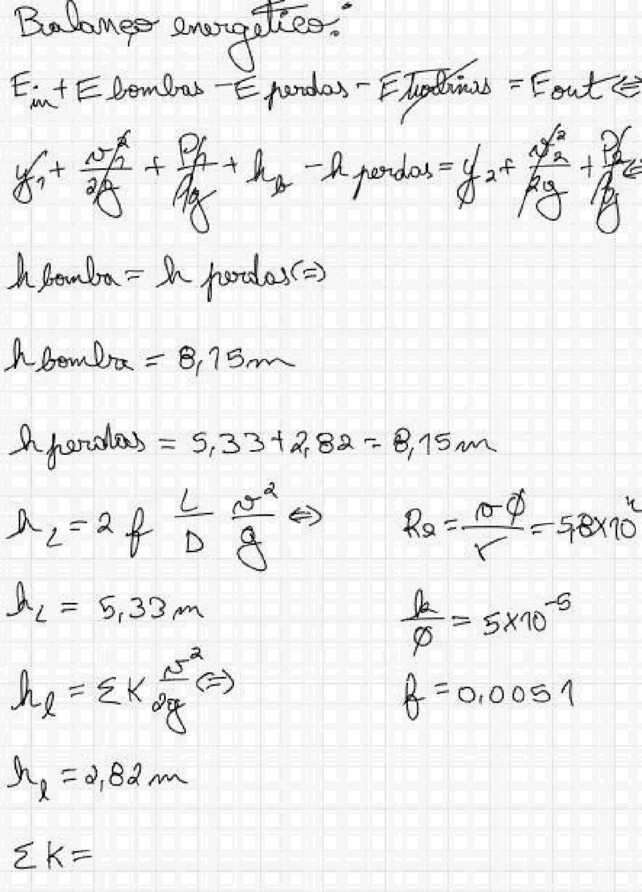 Balanço energético:
E in + E bombas - E perdas - E turbinas = E out ⇔
y₁ + v₁²/2g + P₁/ρg + h_b - h perdas = y₂ + v₂²/2g + P₂/ρg ⇔
h bomba = h perdas (=)
h bomba = 8,15m
h perdas = 5,33 + 2,82 = 8,15m
h_L = 2 f L/D v²/g ⇔ Re = vφ/r = 5,8×10⁴
h_L = 5,33 m k/φ = 5×10⁻⁵
h_l = ΣK v²/2g (=) f = 0,0051
h_l = 2,82 m
ΣK =